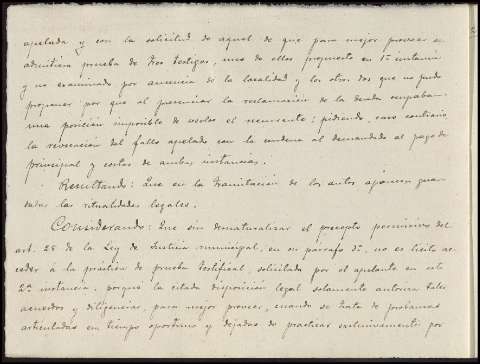 apelada y con la solicitud de aquel de que para mejor proveer se
admitiera prueba de tres testigos, uno de ellos propuesto en 1ª instancia
y no examinado por ausencia de la localidad y los otros dos que no pudo
proponer por que al presenciar la reclamación de la deuda ocupaban
una posición imposible de verlos el recurrente; pidiendo, caso contrario
la revocación del fallo apelado con la condena al demandado al pago de
principal y costas de ambas instancias.
Resultando: Que en la tramitación de los autos aparecen guar-
dadas las ritualidades legales.
Considerando: Que sin desnaturalizar el precepto permisivo del
art. 28 de la Ley de Justicia municipal, en su párrafo 3º, no es lícito ac-
ceder á la práctica de prueba testifical, solicitada por el apelante en esta
2ª instancia, porque la citada disposición legal solamente autoriza tales
acuerdos y diligencias, para mejor proveer, cuando se trata de probanzas
articuladas en tiempo oportuno y dejadas de practicar exclusivamente por